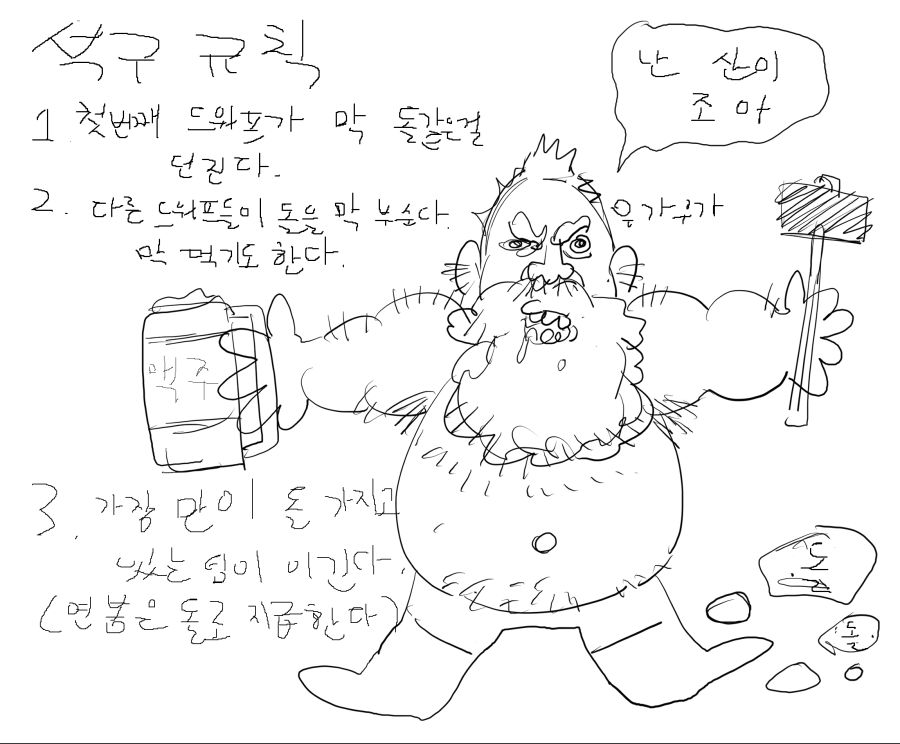 석구 규칙
1 첫번째 드워프가 막 돌같은걸
던진다.
2. 다른 드워프들이 돌을 막 부순다.
막 먹기도 한다.
난 산이
조아
웅가우가
맥주
3. 가장 만이 돌 가지고
있는 팀이 이긴다.
(연봉은 돌로 지급한다)
돌
돌